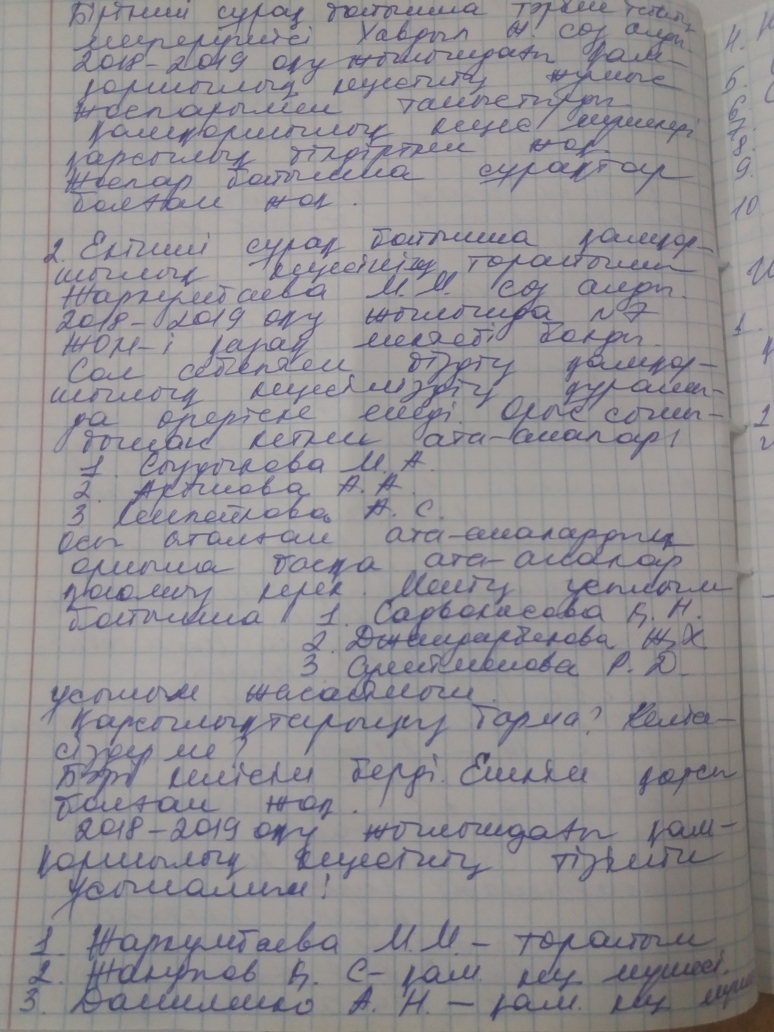 Бірінші сұрақ бойынша тәрбие ісінің
меңгерушісі Хаврыл Н. сөз алды
2018-2019 оқу жылындағы қам-
қоршылық кеңестің жұмыс
жоспарымен таныстырды
Қамқоршылық кеңес мүшелері
қарсылық білдірген жоқ.
Жоспар бойынша сұрақтар
болған жоқ.
2. Екінші сұрақ бойынша қамқор-
шылық кеңестің төрайымы
Жаркумбаева М.М. сөз алды.
2018-2019 оқу жылында №7
ЖОМ-і қазақ мектебі болды.
Сол себептен біздің қамқор-
шылық кеңесіміздің құрамы-
да өзгеріске енеді. Орыс сыны-
бынан кеткен ата-аналар:
1. Сыздыкова М.А.
2. Акышова А.А.
3 Кенпейсова А.С.
Осы аталған ата-аналардың
орнына басқа ата-аналар
қосылу керек. Менің ұсыным
бойынша 1. Садвокасова Б.Н.
2. Джандарбекова Ж.Х
3 Сулейменова Р.Д.
ұсыным жасаймын.
Қарсылықтарыңыз барма? Келісе-
сіздер ме?
Бәрі келісім берді. Ешкім қарсы
болған жоқ.
2018-2019 оқу жылындағы қам-
қоршылық кеңестің тізімін
ұсынамын!
1. Жаркумбаева М.М. - төрайым
2. Жакупов Б. С - қам. кең мүшесі.
3. Даниленко А. Н. - қам. кең мүше
4.
5.
6.
7.
8.
9.
10
1.